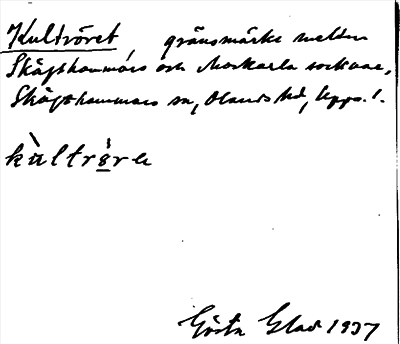 Kultröret, gränsmärke mellan
Skäfthammars och Morkarla socknar,
Skäfthammars sn, Olands hd, Upps. l.
kùltrö́re
Gösta Glad 1937